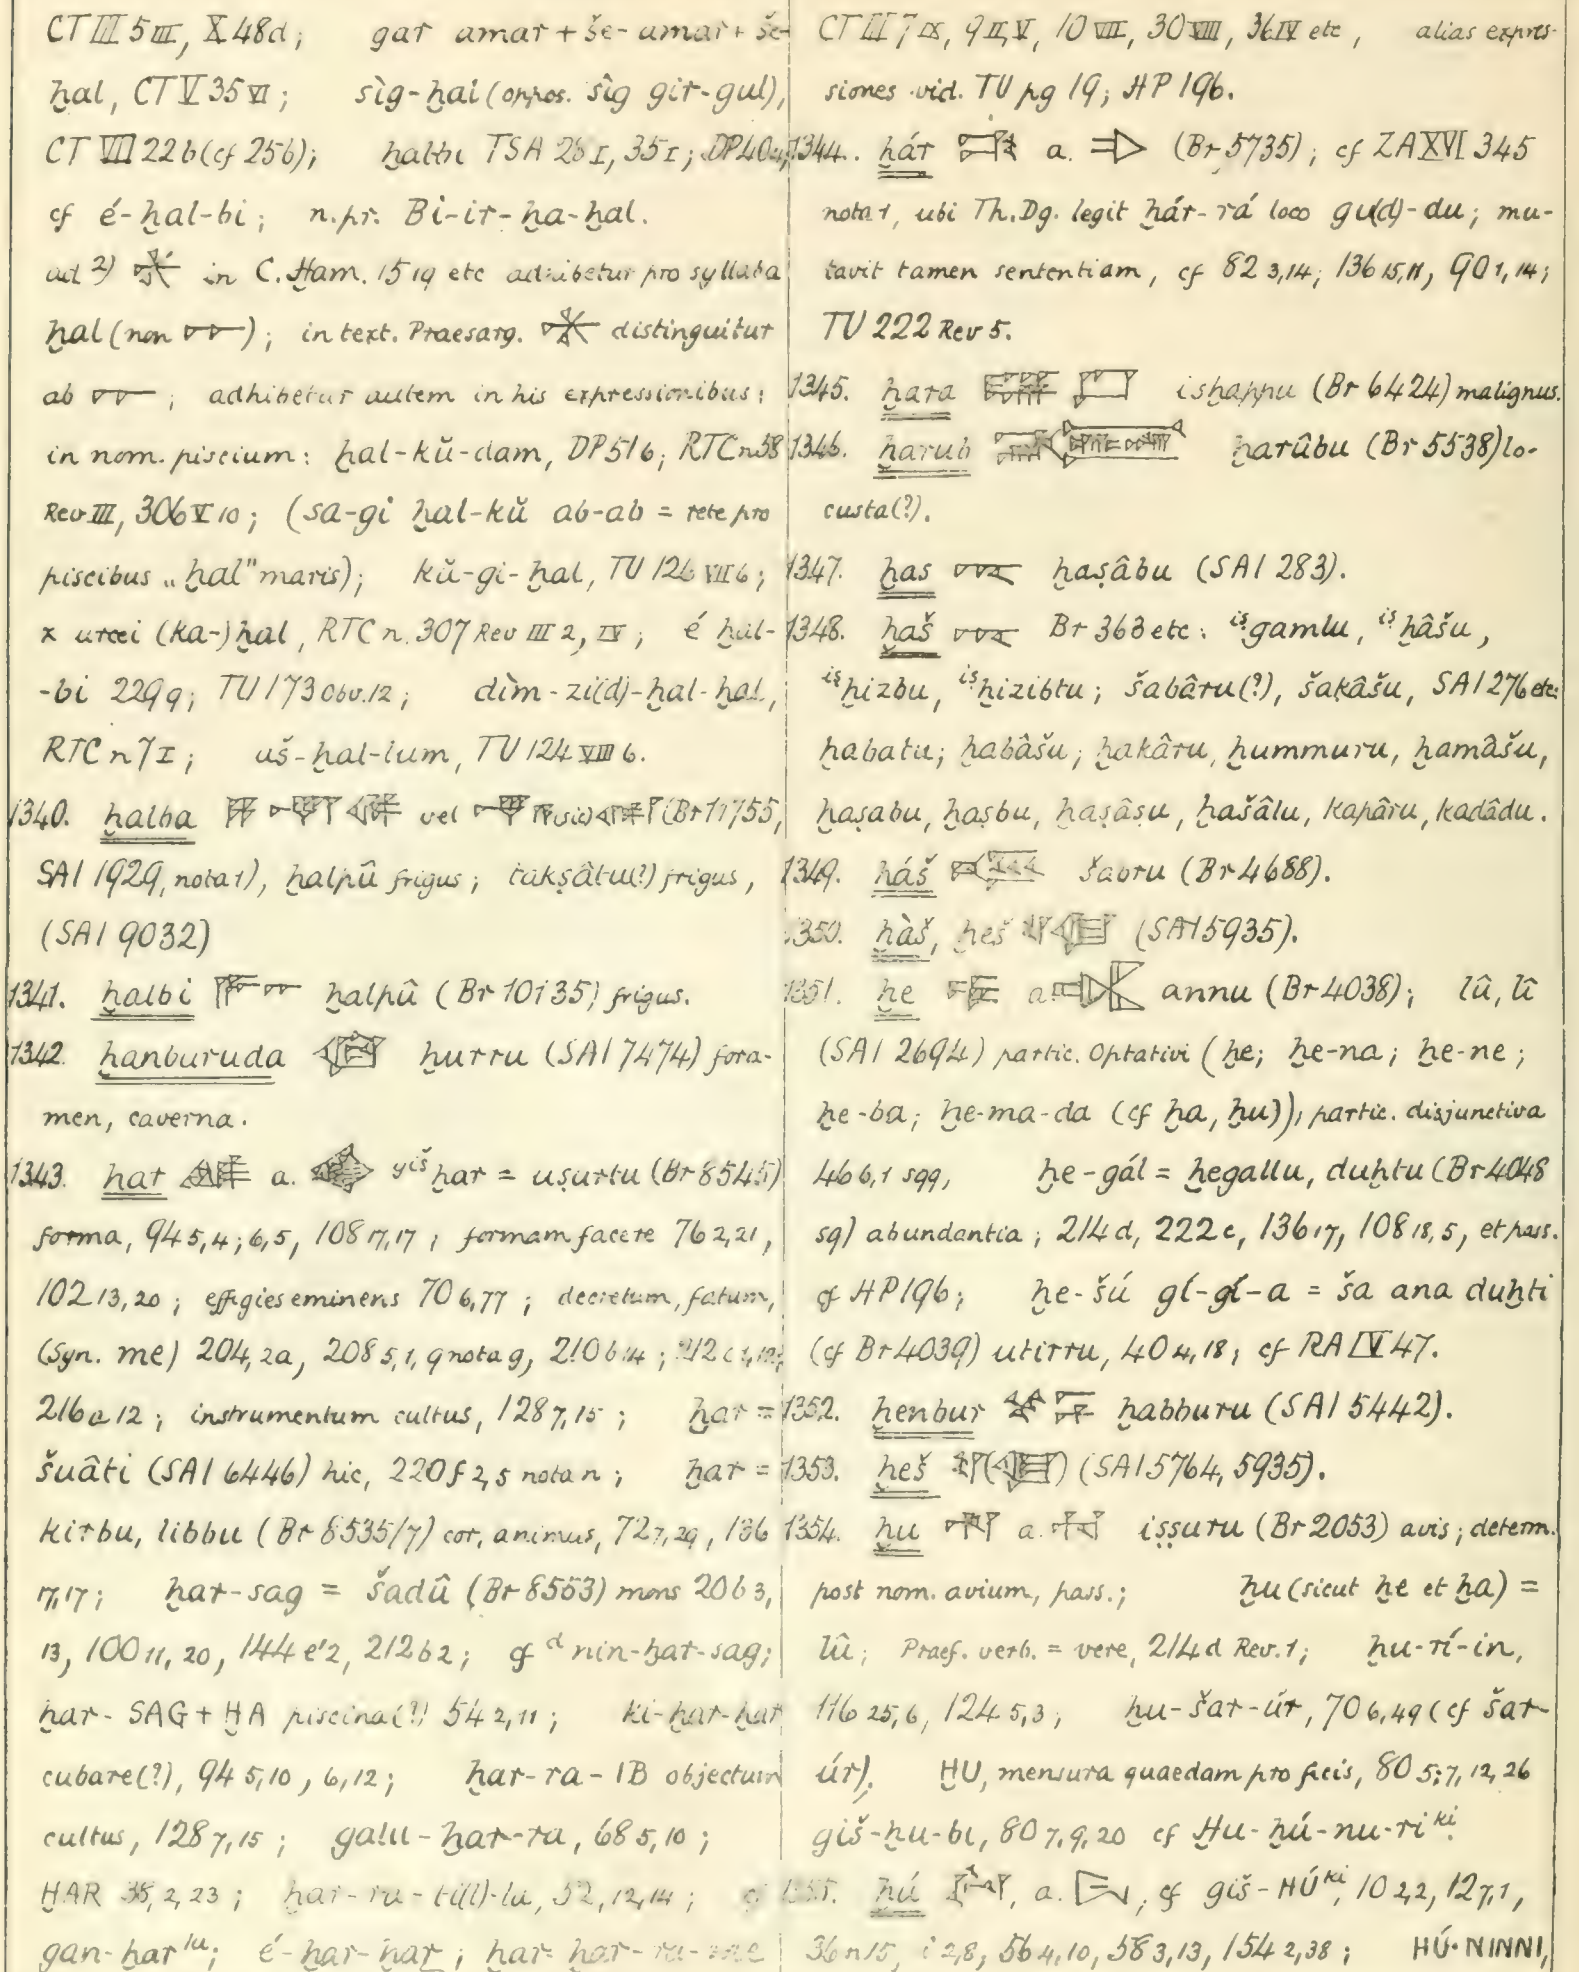 CT III 5 III, X 48d; gar amar + še - amar + še-
ḫal, CT V 35 VI; sìg-ḫal (oppos. sìg gir-gul),
CT VII 22 b (cf 25b); ḫalbi TSA 28 I, 35 I;
cf é-ḫal-bi; n.pr. Bi-ir-ḫa-ḫal.
ad 2) in C. Ham. 15 19 etc adhibetur pro syllaba
ḫal (non ); in text. Praesarg. distinguitur
ab ; adhibetur autem in his expressionibus:
in nom. piscium: ḫal-kŭ-dam, DP 516; RTC n 58
Rev III, 306 V 10; (sa-gi ḫal-kŭ ab-ab = rete pro
piscibus „ḫal" maris); kŭ-gi-ḫal, TU 126 VII 6;
x urcei (ka-)ḫal, RTC n. 307 Rev III 2, IV; é ḫal-
-bi 229 9; TU 173 obv. 12; dìm-zi(d)-ḫal-ḫal,
RTC n 7 I; uš-ḫal-lum, TU 124 VIII 6.
1340. ḫalba vel (Br 11755,
SAI 1929, nota 1), ḫalpû frigus; takṣâtu(?) frigus,
(SAI 9032)
1341. ḫalbi ḫalpû (Br 10135) frigus.
1342. ḫanburuda ḫurru (SAI 7474) fora-
men, caverna.
1343. ḫar a. giš ḫar = uṣurtu (Br 8545)
forma, 94 5,4; 6,5, 108 17,17; formam facere 76 2,21,
102 13,20; effigies eminens 70 6,77; decretum, fatum,
(syn. me) 204, 2a, 208 5,1, 9 nota g, 210 b 14;
216 a 12; instrumentum cultus, 128 7,15; ḫar =
šuâti (SAI 6446) hic, 220 f 2,5 nota n; ḫar =
kirbu, libbu (Br 8535/7) cor, animus, 72 7,29, 136
17,17; ḫar-sag = šadû (Br 8553) mons 206 3,
13, 100 11,20, 144 e' 2, 212 b 2; cf d nin-ḫar-sag;
ḫar-SAG + ḪA piscina(?) 54 2,11; ki-ḫar-ḫar
cubare(?), 94 5,10, 6,12; ḫar-ra-IB objectum
cultus, 128 7,15; galu-ḫar-ra, 68 5,10;
ḪAR 35, 2,23; ḫar-ra-til(l)-la, 52, 12,14; cf
gan-ḫar lu; é-ḫar-ḫar; ḫar-ḫar-ra-
CT III 7 IX, 9 II, V, 10 VIII, 30 VIII, 36 IV etc, alias expres-
siones vid. TU pg 19; HP 196.
1344. ḫár a. (Br 5735); cf ZA XVI 345
nota 1, ubi Th. Dg. legit ḫár-rá loco gu(d)-du; mu-
tavit tamen sententiam, cf 82 3,14; 136 15,11, 90 1,14;
TU 222 Rev 5.
1345. ḫara isḫappu (Br 6424) malignus.
1346. ḫarub ḫarûbu (Br 5538) lo-
custa(?).
1347. ḫas ḫaṣâbu (SAI 283).
1348. ḫaš Br 363 etc: iṣ gamlu, iṣ ḫâšu,
iṣ ḫizbu, iṣ ḫizibtu; šabâru(?), šakâšu, SAI 276 etc:
ḫabatu; ḫabâšu; ḫakâru, ḫummuru, ḫamâšu,
ḫaṣabu, ḫaṣbu, ḫaṣâṣu, ḫašâlu, kapâru, kadâdu.
1349. ḫáš šabru (Br 4688).
1350. ḫàš, ḫeš (SAI 5935).
1351. ḫe a. annu (Br 4038); lû, lî
(SAI 2694) partic. Optativi (ḫe; ḫe-na; ḫe-ne;
ḫe-ba; ḫe-ma-da (cf ḫa, ḫu)), partic. disjunctiva
46 6,1 sqq, ḫe-gál = ḫegallu, duḫtu (Br 4048
sq) abundantia; 214 d, 222 c, 136 17, 108 18,5, et pass.
cf HP 196; ḫe-šú gí-gí-a = ša ana duḫti
(cf Br 4039) utirru, 40 4,18; cf RA IV 47.
1352. ḫenbur ḫabburu (SAI 5442).
1353. ḫeš (SAI 5764, 5935).
1354. ḫu a. iṣṣuru (Br 2053) avis; determ.
post nom. avium, pass.; ḫu (sicut ḫe et ḫa) =
lû; Praef. verb. = vere, 214 d Rev. 1; ḫu-rí-in,
116 25,6, 124 5,3; ḫu-šar-úr, 70 6,49 (cf šar-
úr), ḪU, mensura quaedam pro ficis, 80 5; 7, 12, 26
giš-ḫu-bi, 80 7, 9, 20 cf Ḫu-ḫú-nu-ri ki.
1355. ḫú, a. ; cf giš-ḪÚ ki, 10 2,2, 12 7,1,
36 n 15, i 2,8, 56 4,10, 58 3,13, 154 2,38; ḪÚ-NINNI,